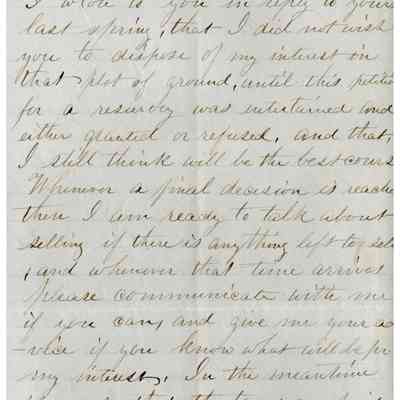 I wrote is you in reply to yours
last spring, that I did not wish
you to dispose of my interest in
that plot of ground, until this petition
for a resurvey was entertained and
either granted or refused, and that,
I still think will be the best cours
Whenever a final decision is reache
then I am ready to talk about
selling if there is anything left to sell
, and whenever that time arrives
please communicate with me
if you can, and give me your ad
-vice if you know what will be for
my interest. In the meantime